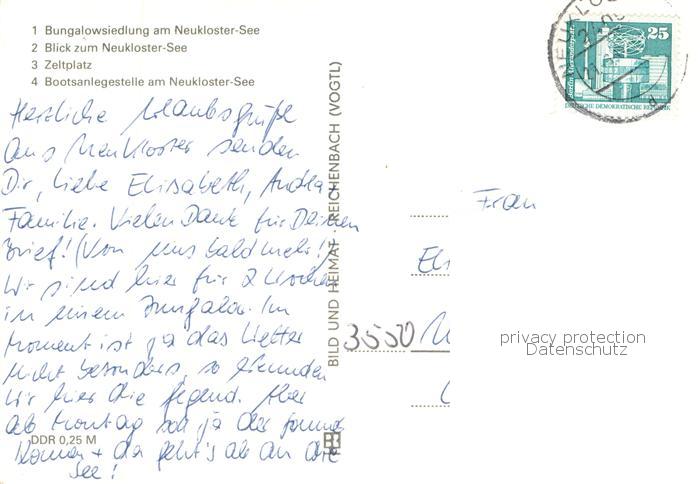 1 Bungalowsiedlung am Neukloster-See
2 Blick zum Neukloster-See
3 Zeltplatz
4 Bootsanlegestelle am Neukloster-See
Herzliche Urlaubsgrüße
aus Neukloster senden
Dir, liebe Elisabeth, Andrea +
Familie. Vielen Dank für Deinen
Brief! (Von uns bald mehr!)
Wir sind hier für 2 Wochen
in einem Bungalow. Im
Moment ist ja das Wetter
nicht besonders, so erkunden
wir hier die Gegend. Aber
ab Montag soll ja der Sommer
kommen + da geht's ab an die
See!
DDR 0,25 M
BILD UND HEIMAT · REICHENBACH (VOGTL)
25
Berlin, Alexanderplatz
DEUTSCHE DEMOKRATISCHE REPUBLIK
Frau
3550
privacy protection
Datenschutz